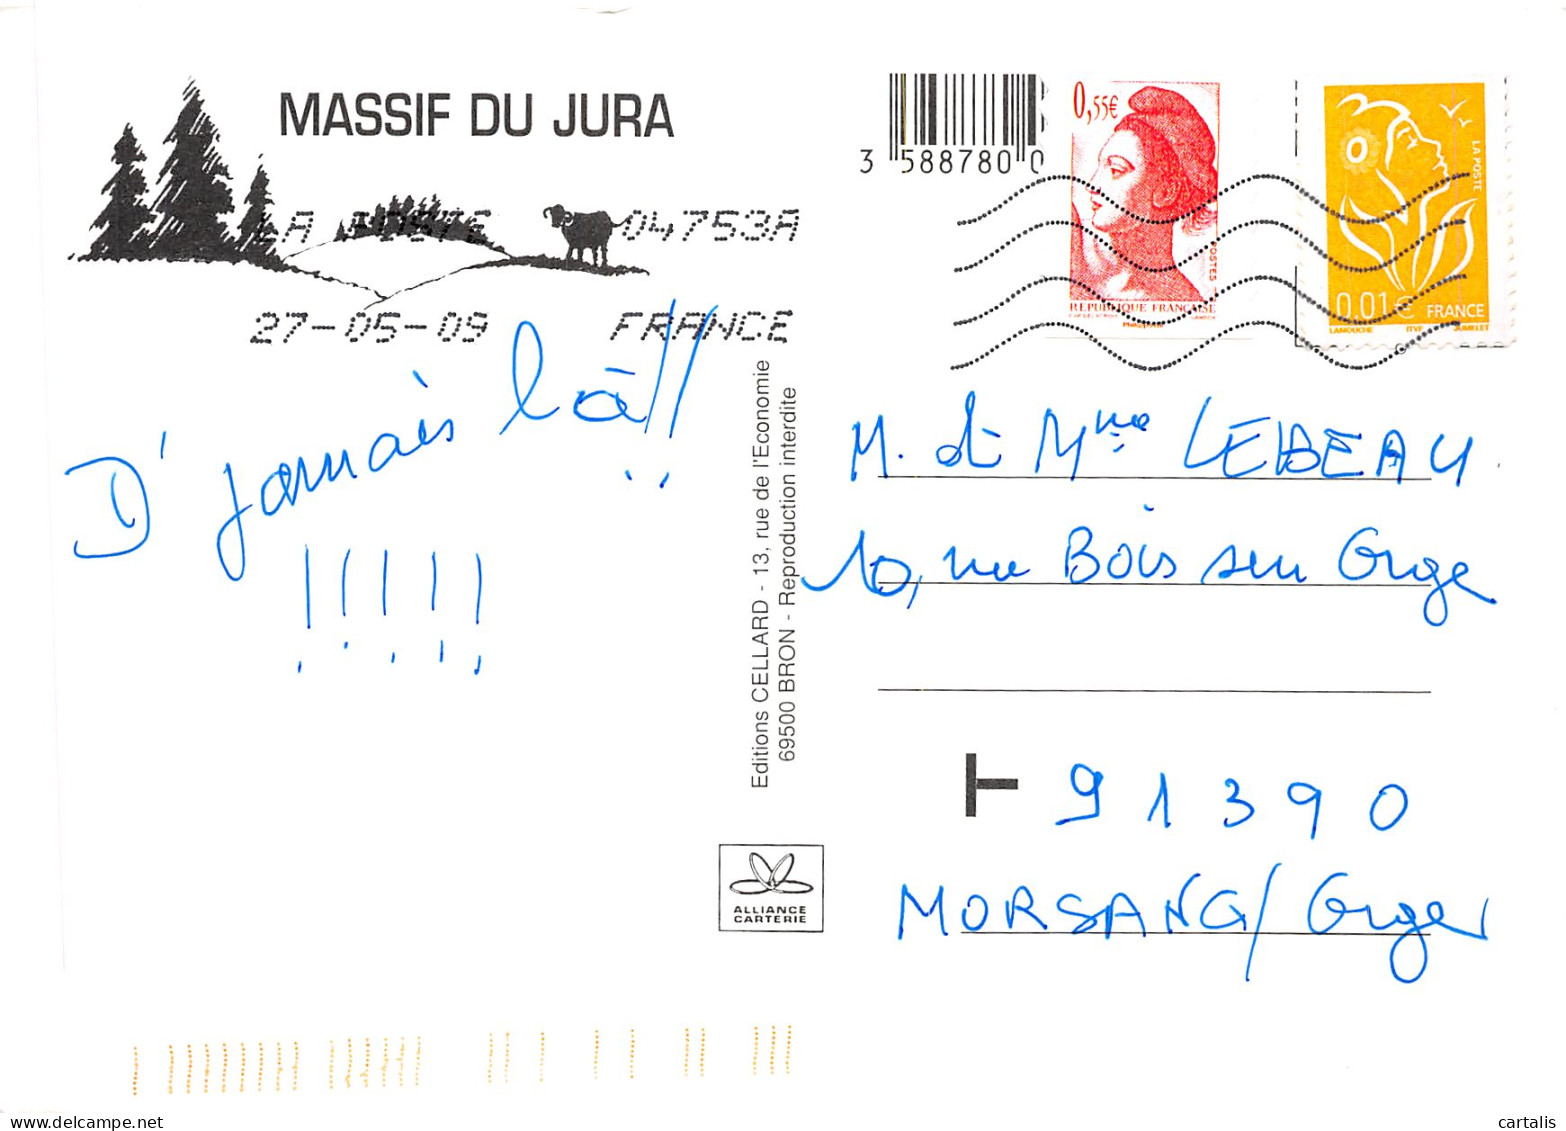 MASSIF DU JURA
LA POSTE 04753A
27-05-09 FRANCE
D' jamais là!!
!!!!!
Editions CELLARD - 13, rue de l'Economie
69500 BRON - Reproduction interdite
ALLIANCE
CARTERIE
3 588780 0
0,55€
POSTES
REPUBLIQUE FRANÇAISE
LA POSTE
0.01€ FRANCE
LAMOUCHE ITVF JUMELET
M. et Mme LEBEAU
10, rue Bois sur Orge
T 91390
MORSANG/Orge
cartalis